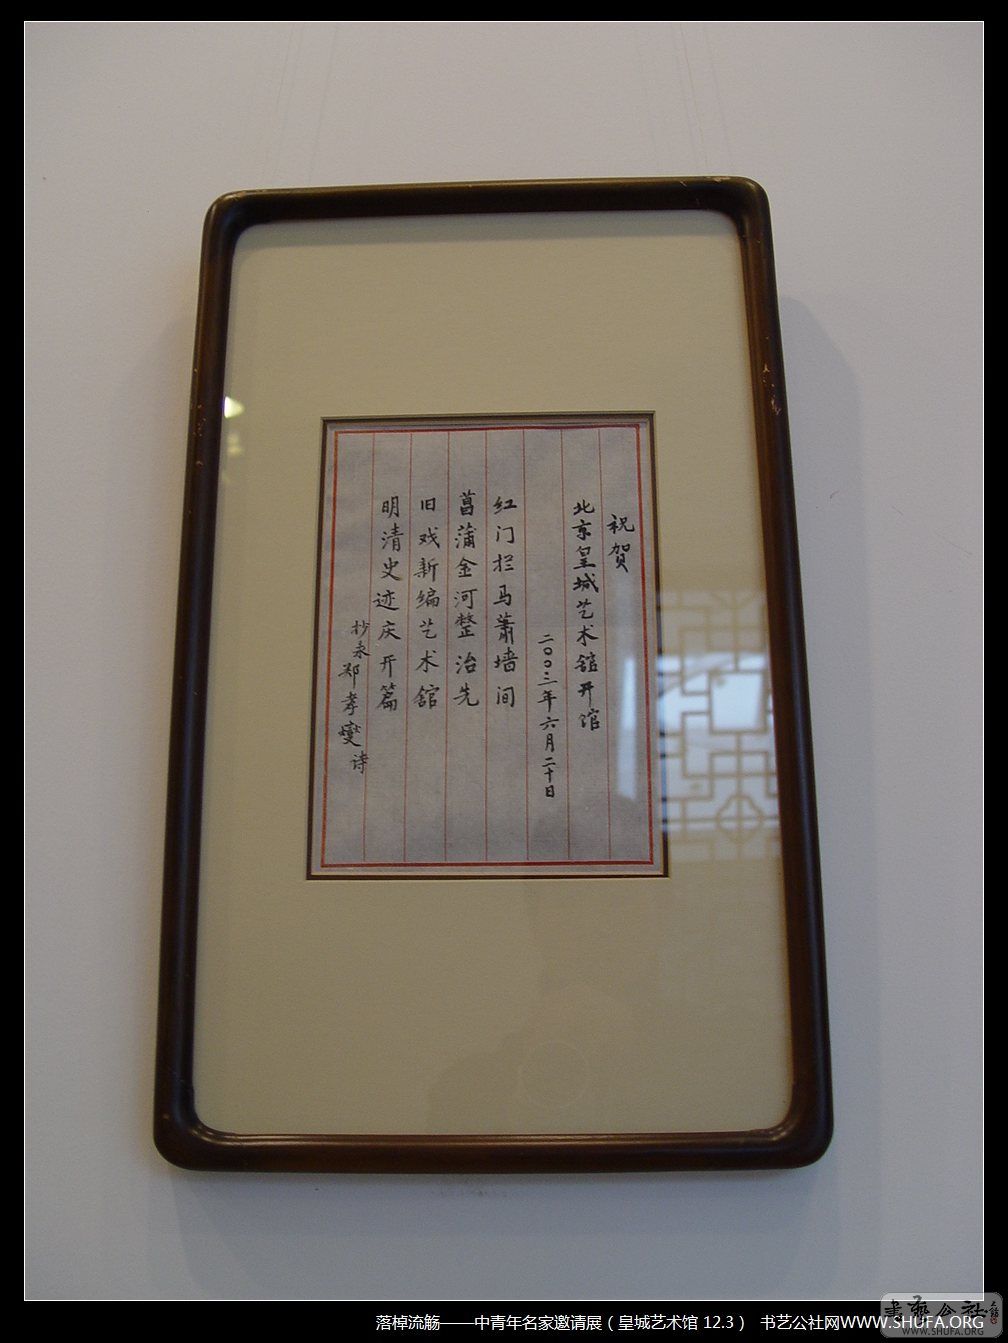 祝贺
北京皇城艺术馆开馆
二〇〇三年六月二十日
红门拦马萧墙间
菖蒲金河整治先
旧戏新编艺术馆
明清史迹庆开篇
抄录郑孝燮诗
落棹流觞——中青年名家邀请展（皇城艺术馆 12.3） 书艺公社网WWW.SHUFA.ORG
書藝公社
WWW.SHUFA.ORG